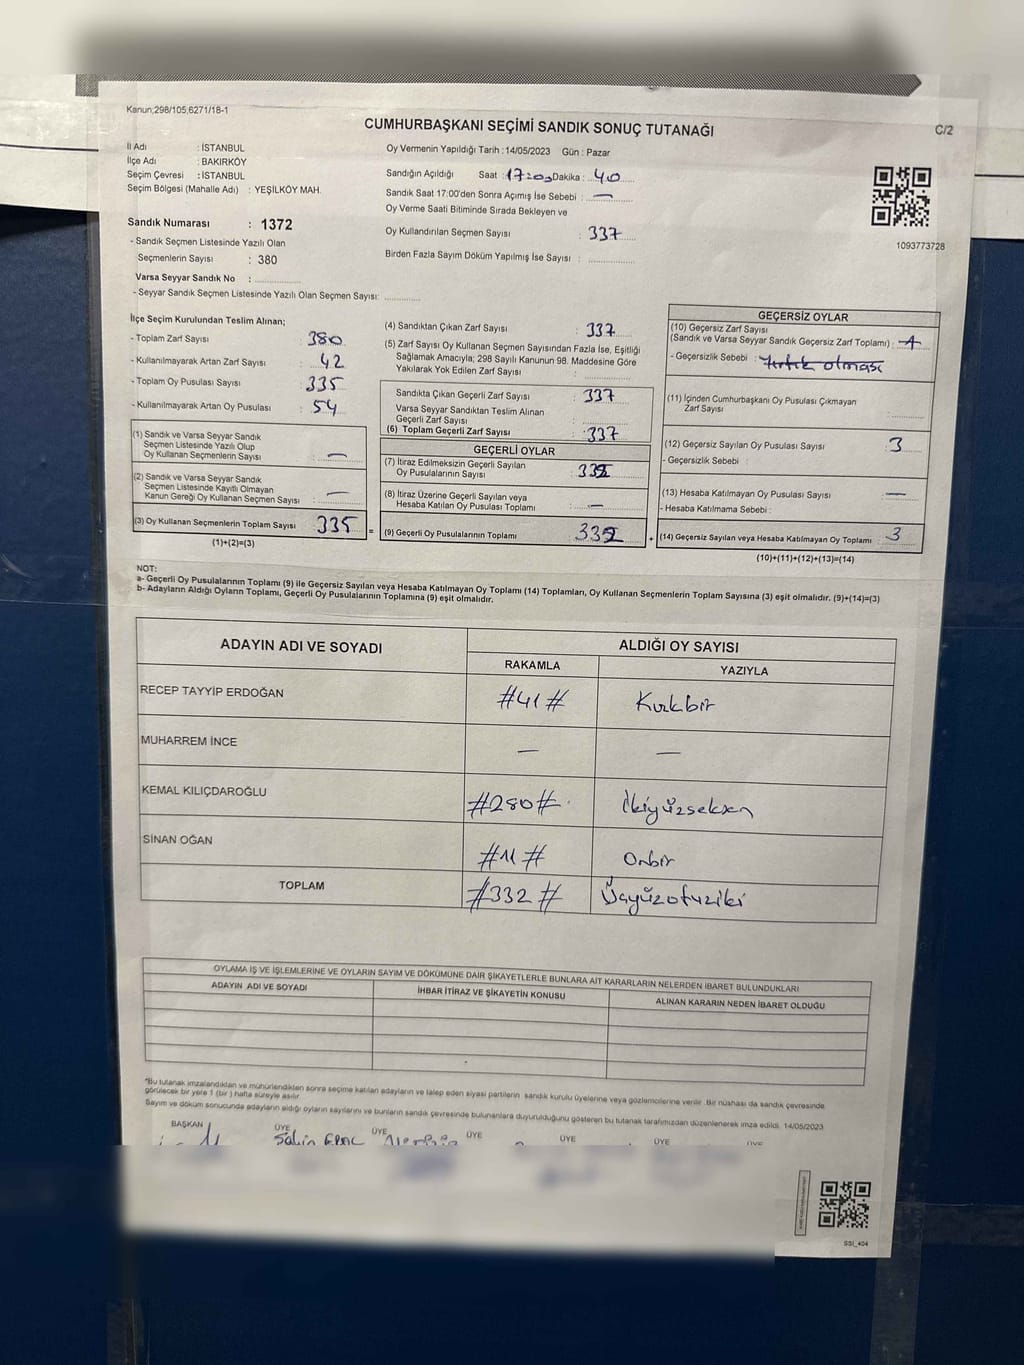 Kanun;298/105,6271/18-1
CUMHURBAŞKANI SEÇİMİ SANDIK SONUÇ TUTANAĞI
C/2
İl Adı : İSTANBUL
İlçe Adı : BAKIRKÖY
Seçim Çevresi : İSTANBUL
Seçim Bölgesi (Mahalle Adı) : YEŞİLKÖY MAH.
Sandık Numarası : 1372
- Sandık Seçmen Listesinde Yazılı Olan
Seçmenlerin Sayısı : 380
Varsa Seyyar Sandık No :
- Seyyar Sandık Seçmen Listesinde Yazılı Olan Seçmen Sayısı:
Oy Vermenin Yapıldığı Tarih : 14/05/2023 Gün : Pazar
Sandığın Açıldığı Saat : 17 Dakika : 40
Sandık Saat 17:00'den Sonra Açımış İse Sebebi : —
Oy Verme Saati Bitiminde Sırada Bekleyen ve
Oy Kullandırılan Seçmen Sayısı : 337
Birden Fazla Sayım Döküm Yapılmış İse Sayısı :
1093773728
İlçe Seçim Kurulundan Teslim Alınan;
- Toplam Zarf Sayısı : 380
- Kullanılmayarak Artan Zarf Sayısı : 42
- Toplam Oy Pusulası Sayısı : 335
- Kullanılmayarak Artan Oy Pusulası : 54
(1) Sandık ve Varsa Seyyar Sandık
Seçmen Listesinde Yazılı Olup
Oy Kullanan Seçmenlerin Sayısı : —
(2) Sandık ve Varsa Seyyar Sandık
Seçmen Listesinde Kayıtlı Olmayan
Kanun Gereği Oy Kullanan Seçmen Sayısı : —
(3) Oy Kullanan Seçmenlerin Toplam Sayısı : 335 =
(1)+(2)=(3)
(4) Sandıktan Çıkan Zarf Sayısı : 337
(5) Zarf Sayısı Oy Kullanan Seçmen Sayısından Fazla İse, Eşitliği
Sağlamak Amacıyla; 298 Sayılı Kanunun 98. Maddesine Göre
Yakılarak Yok Edilen Zarf Sayısı :
Sandıkta Çıkan Geçerli Zarf Sayısı : 337
Varsa Seyyar Sandıktan Teslim Alınan
Geçerli Zarf Sayısı :
(6) Toplam Geçerli Zarf Sayısı : 337
GEÇERLİ OYLAR
(7) İtiraz Edilmeksizin Geçerli Sayılan
Oy Pusulalarının Sayısı : 332
(8) İtiraz Üzerine Geçerli Sayılan veya
Hesaba Katılan Oy Pusulası Toplamı : —
(9) Geçerli Oy Pusulalarının Toplamı : 332 +
GEÇERSİZ OYLAR
(10) Geçersiz Zarf Sayısı
(Sandık ve Varsa Seyyar Sandık Geçersiz Zarf Toplamı) : 1
- Geçersizlik Sebebi : Yırtık olması
(11) İçinden Cumhurbaşkanı Oy Pusulası Çıkmayan
Zarf Sayısı :
(12) Geçersiz Sayılan Oy Pusulası Sayısı : 3
- Geçersizlik Sebebi :
(13) Hesaba Katılmayan Oy Pusulası Sayısı : —
- Hesaba Katılmama Sebebi :
(14) Geçersiz Sayılan veya Hesaba Katılmayan Oy Toplamı : 3
(10)+(11)+(12)+(13)=(14)
NOT:
a- Geçerli Oy Pusulalarının Toplamı (9) ile Geçersiz Sayılan veya Hesaba Katılmayan Oy Toplamı (14) Toplamları, Oy Kullanan Seçmenlerin Toplam Sayısına (3) eşit olmalıdır. (9)+(14)=(3)
b- Adayların Aldığı Oyların Toplamı, Geçerli Oy Pusulalarının Toplamına (9) eşit olmalıdır.
ADAYIN ADI VE SOYADI ALDIĞI OY SAYISI
RAKAMLA YAZIYLA
RECEP TAYYİP ERDOĞAN #41# Kırkbir
MUHARREM İNCE — —
KEMAL KILIÇDAROĞLU #280# İkiyüzseksen
SİNAN OĞAN #11# Onbir
TOPLAM #332# Üçyüzotuziki
OYLAMA İŞ VE İŞLEMLERİNE VE OYLARIN SAYIM VE DÖKÜMÜNE DAİR ŞİKAYETLERLE BUNLARA AİT KARARLARIN NELERDEN İBARET BULUNDUKLARI
ADAYIN ADI VE SOYADI İHBAR İTİRAZ VE ŞİKAYETİN KONUSU ALINAN KARARIN NEDEN İBARET OLDUĞU
*Bu tutanak imzalandıktan ve mühürlendikten sonra seçime katılan adayların ve talep eden siyasi partilerin sandık kurulu üyelerine veya gözlemcilerine verilir. Bir nüshası da sandık çevresinde
görülecek bir yere 1 (bir) hafta süreyle asılır.
Sayım ve döküm sonucunda adayların aldığı oyların sayılarını ve bunların sandık çevresinde bulunanlara duyurulduğunu gösteren bu tutanak tarafımızdan düzenlenerek imza edildi. 14/05/2023
BAŞKAN ÜYE ÜYE ÜYE ÜYE ÜYE ÜYE
SSI_404